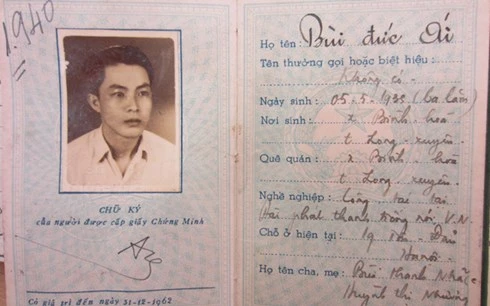 1.940
CHỮ KÝ
của người được cấp giấy Chứng Minh
Có giá trị đến ngày 31-12-1962
Họ tên: Bùi đức Ái
Tên thường gọi hoặc biệt hiệu:
Không có.
Ngày sinh: 05-5-1935
Nơi sinh: x Bình hoà
t Long-xuyên
Quê quán: x Bình hoà
t Long xuyên.
Nghề nghiệp: Công tác tại
Đài phát thanh tiếng nói V.N
Chỗ ở hiện tại: 19
Hanoi
Họ tên cha, mẹ: Bùi thanh
Huỳnh thị